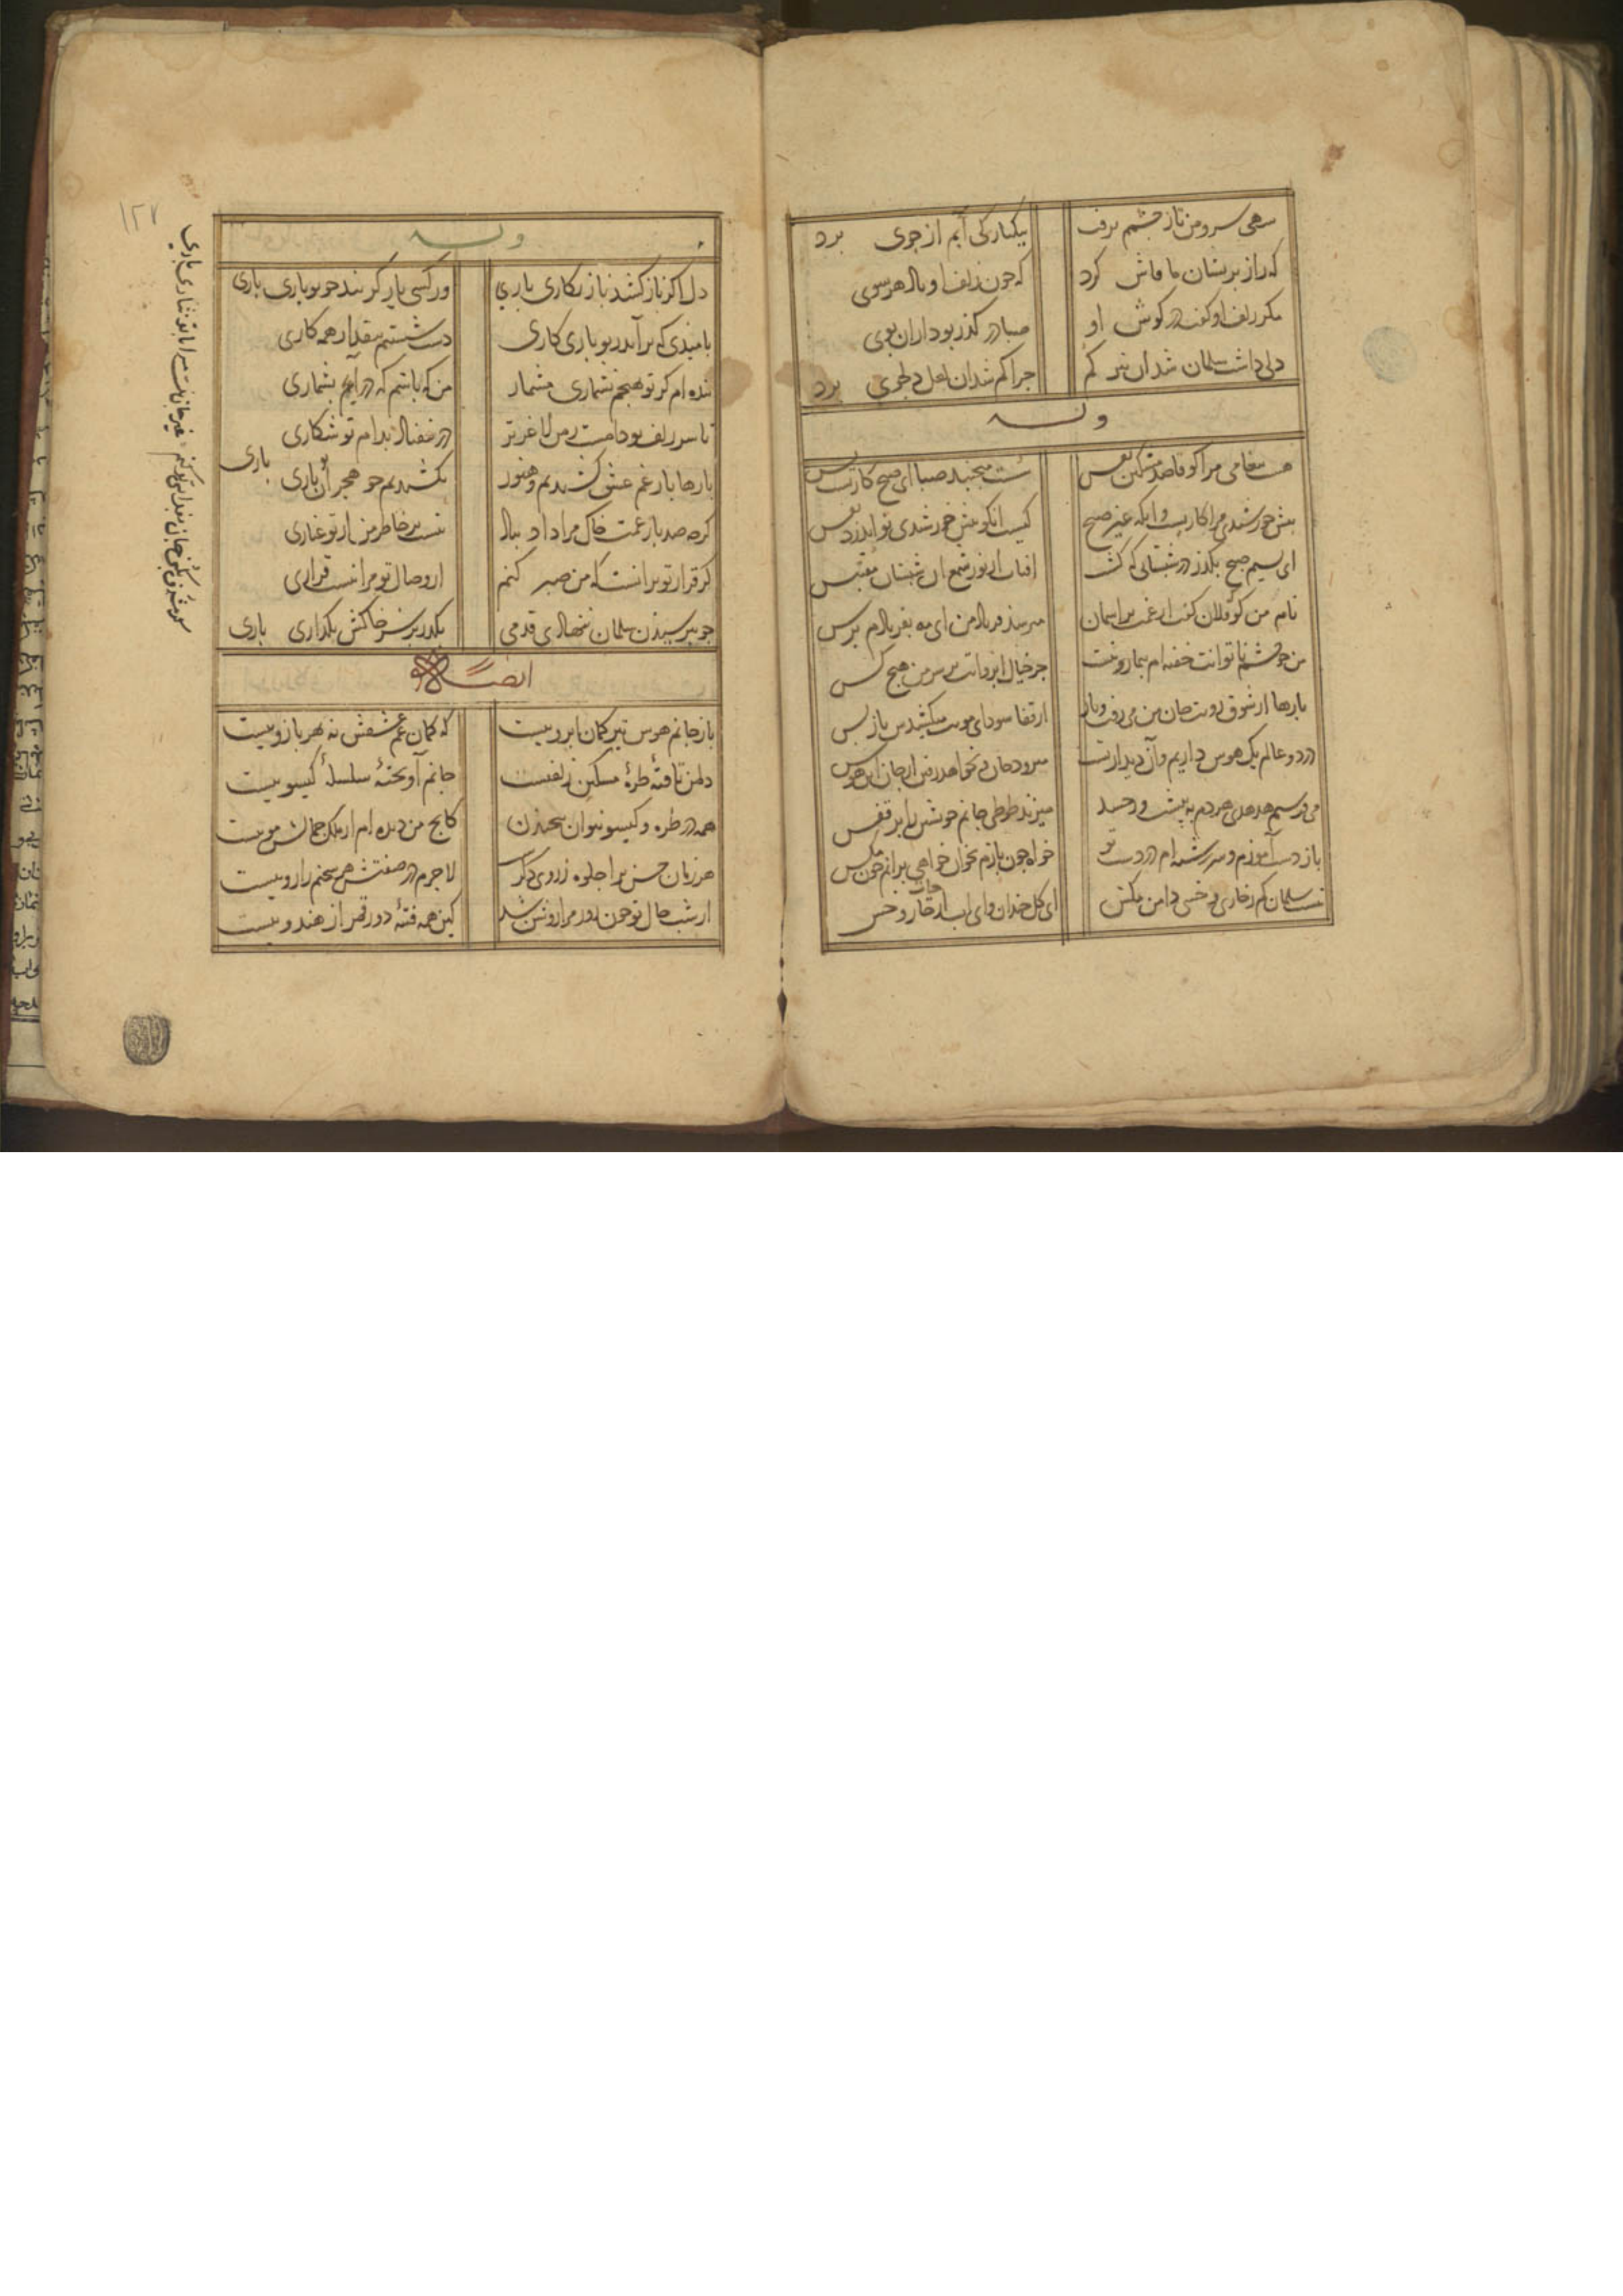 سهی سرو من تا ز چشمم برفت
بیکبارگی آبم از جوی برد
که راز پریشان ما فاش کرد
که چون زلف او باد هر سوی
مگر زلف او گفت در گوش او
صبا در گذر بود از آن بوی
دلی داشت سلمان شد آن نیز گم
چرا گم شد آن لعل دلجوی برد
وله
هست پیغامی مرا کو قاصدی مشکین نفس
سست میجنبد صبا ای صبح کار تست بس
پیش خورشیدی مرا کاریست و آنکه غیر صبح
کیست آنکو پیش خورشیدی تواند زد نفس
ای نسیم صبح بگذر در شبستانی که هست
آفتاب از نور شمع آن شبستان مقتبس
نام من کو فلان کفت از غمت بر آسمان
میرسد فریاد من ای مه بفریادم برس
من چو چشم ناتوانت خفته ام بیمار و نیست
جز خیال ابروانت بر سر من هیچ کس
بارها از شوق رویت جان من می رفت و باز
از قفا سودای مویت میکشیدش باز پس
در دو عالم یک هوس داریم و آن دیدار تست
میرود جان و نخواهد رفتن از جان این هوس
می پرستم هدهدی هر دم به پیشت ور حسد
میزند طوطی جانم خویشتن را بر قفس
باز دست آموزم و سررشته ام در دست تو
خواه چون بازم بخوان خواهی برانم چون مگس
نیست سلمان کم ز خاری و خسی دامن مکش
ای گل خندان و ای آب حیات از خار و خس
وله
دل اگر ناز کشد ناز نگاری باری
ور کسی یار گزیند چو تو یاری باری
بامیدی که برآید ز تو باری کاری
دست شستیم بیکبار ز همه کاری
شده ام گر تو بهیچم نشماری مشمار
من که باشم که در آیم بشماری
تا سر زلف تو دامست ز من لاغرتر
در نیفتاد بدام تو شکاری باری
بارها بار غم عشق کشیدیم و هنوز
نکشیدیم چو هجر تو آن باری
کرد صد بار غمت خاک مرا داد بباد
نیست بر خاطر من از تو غباری
گر قرار تو برانست که من صبر کنم
از وصال تو مرا نیست قراری
چو بپرسیدن سلمان ننهادی قدمی
بگذر بر سر خاکش بگذاری باری
ایضا له
باز جانم هوس تیر کمان ابروییست
که کمان غم عشقش نه بهر بازوییست
دل من تافته طره مشکین زلفیست
جانم آویخته سلسله گیسوییست
همه در طره و گیسو نتوان پیچیدن
کانچ من دیده ام از ملک جمالش موییست
هر زبان حسن ترا جلوه ز روی دگر
لاجرم در صفتش هر سخنم را روییست
از شب خال تو چون روز مرا روشن شد
کین همه فتنه دور قمر از هندوییست
۱۲۷